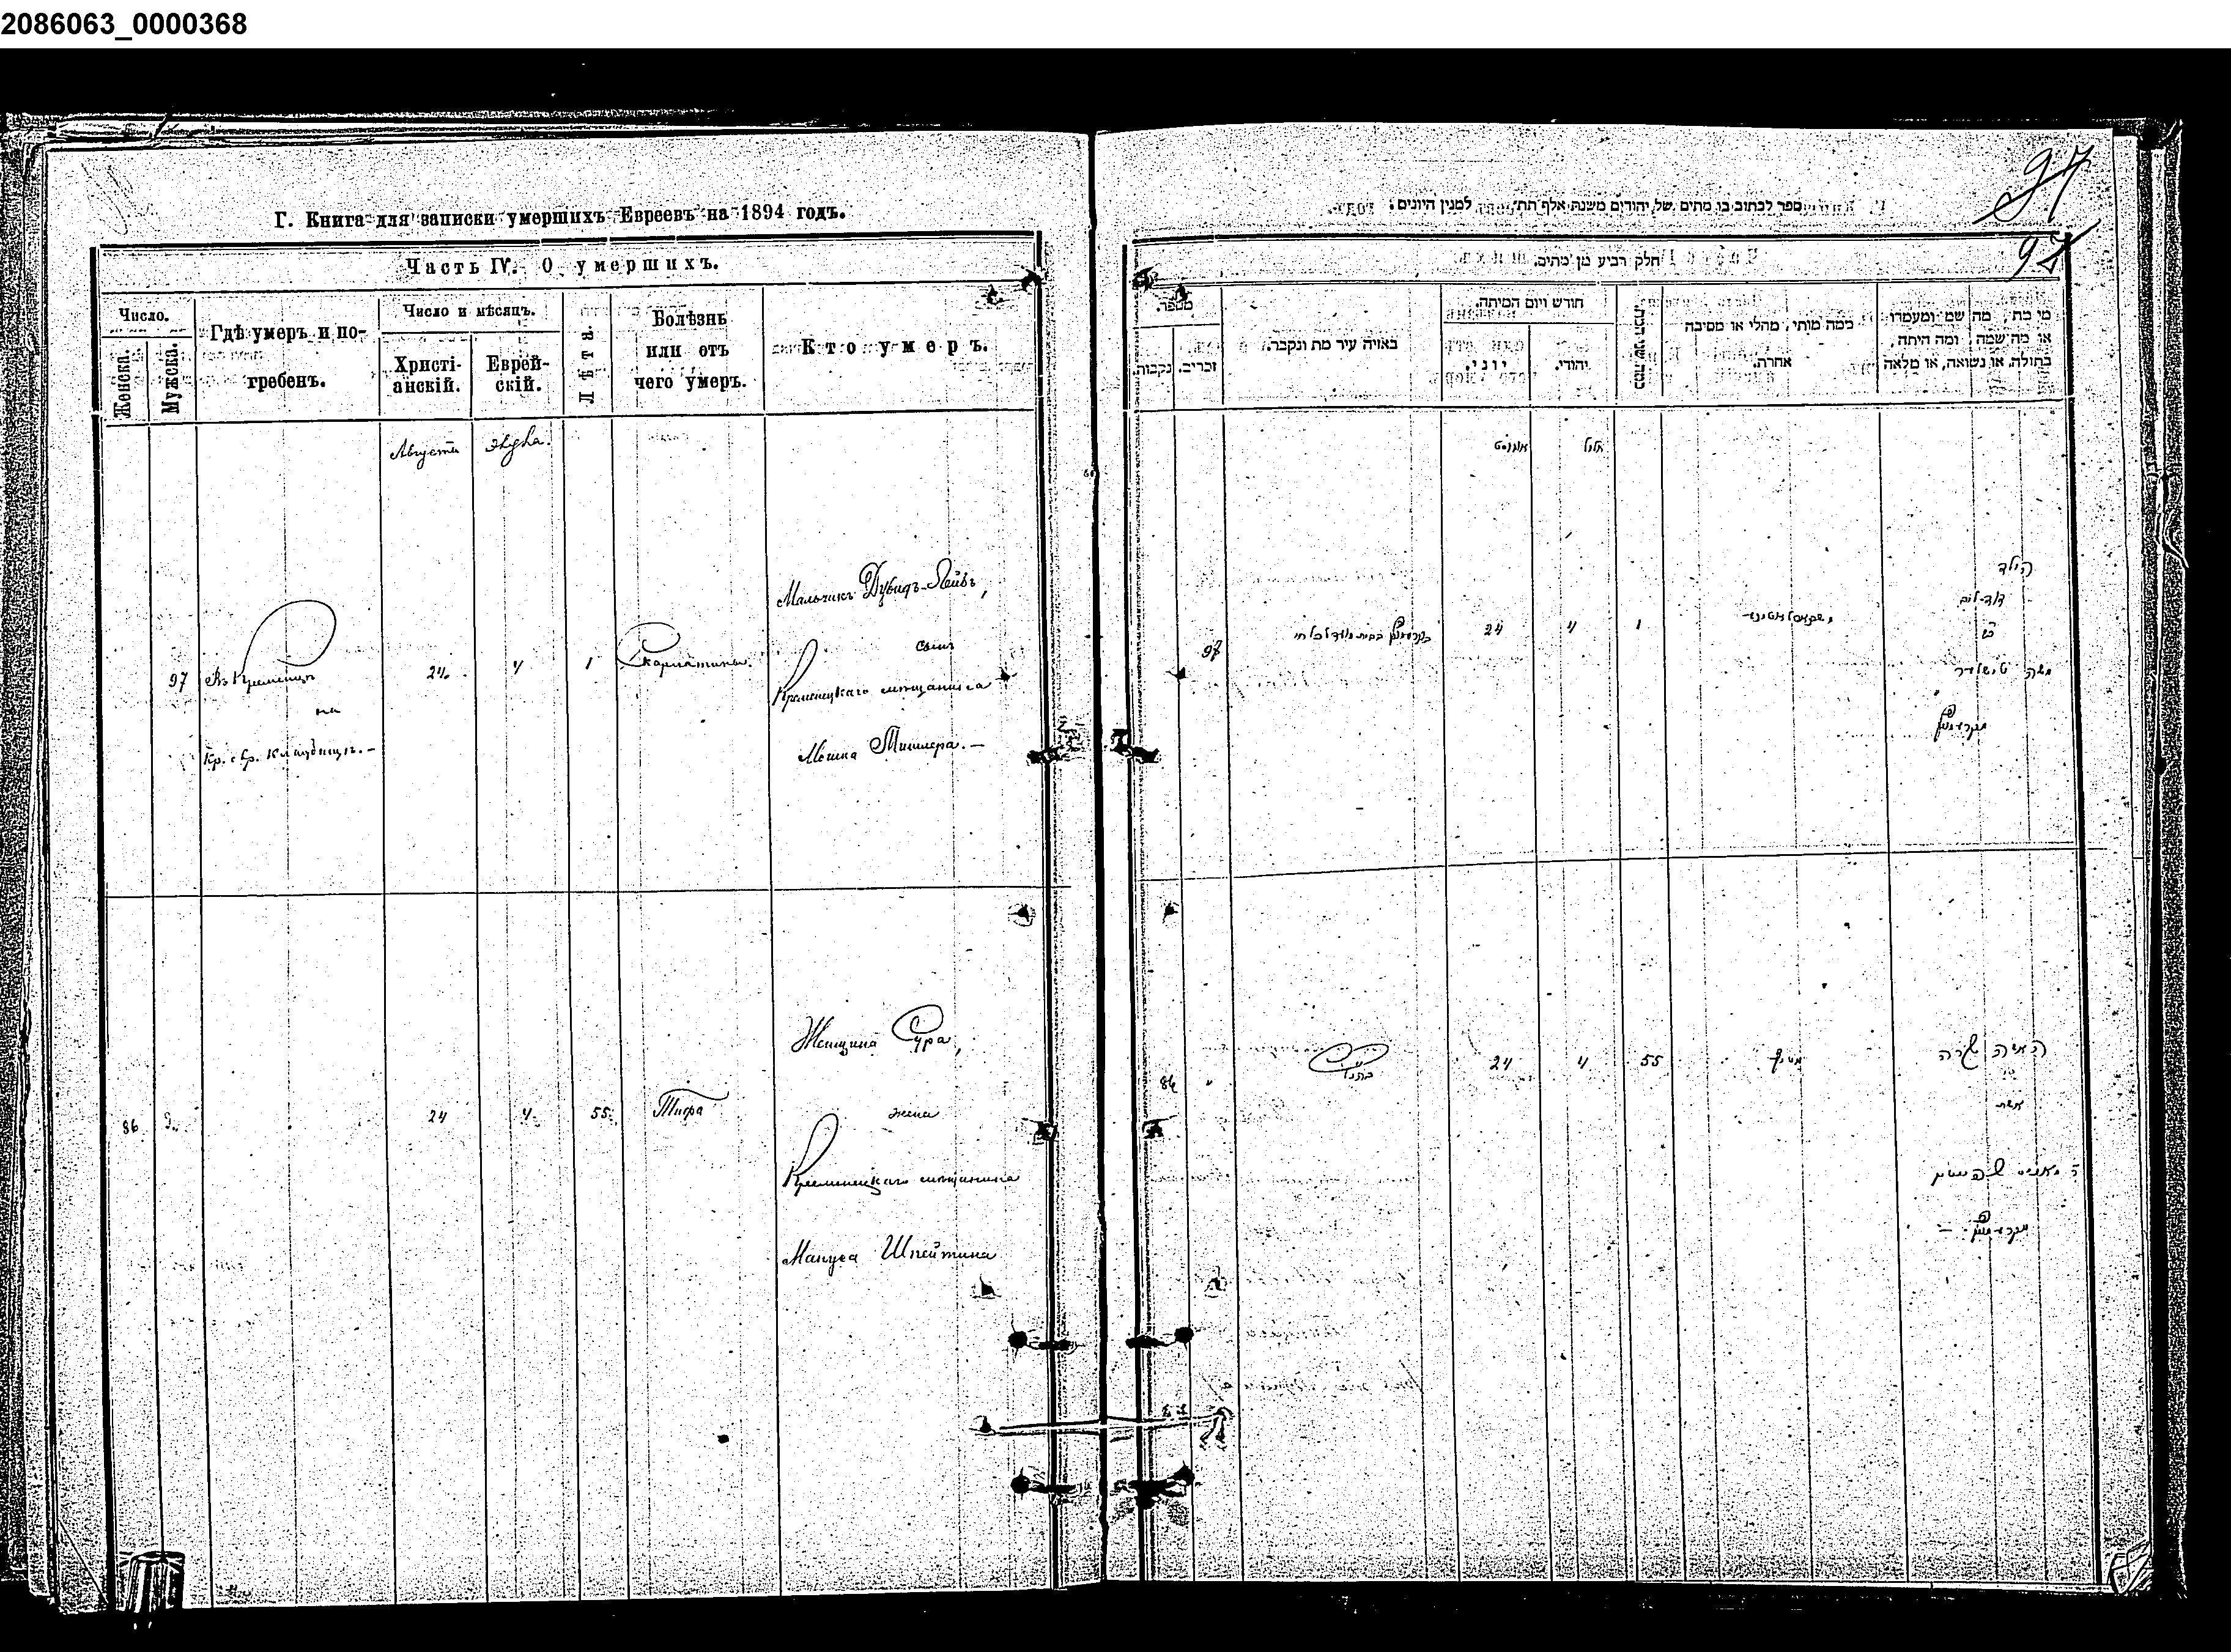 2086063_0000368
Г. Книга для записки умершихъ Евреевъ на 1894 годъ.
Часть IV. О умершихъ.
Число.
Женска.
Мужска.
Гдѣ умеръ и по-
гребенъ.
Число и мѣсяцъ.
Христі-
анскій.
Еврей-
скій.
Лѣта.
Болѣзнь
или отъ
чего умеръ.
Кто умеръ.
Августа
Элула.
97
Въ Кременцѣ
на
Кр. евр. кладбищѣ. —
24.
4
1
Скарлатина.
Мальчикъ Дувидъ-Лейбъ,
сынъ
Кременецкаго мѣщанина
Мошка Тишлера. —
86
24
4.
55.
Тифа
Женщина Сура,
жена
Кременецкаго мѣщанина
Мануса Шпейтина
97
97
ספר לכתוב בו מתים של יהודים משנת אלף תת״ למנין היונים:
חלק רביע מן מתים.
מספר.
נקבות.
זכרים.
באיזה עיר מת ונקבר.
חודש ויום המיתה.
יוני.
יהודי.
כמה מותי, מהלי או מסיבה
אחרת.
מי מת, מה שם ומעמדו
או מה שמה, ומה היתה,
בתולה, או נשואה, או מלאה
אוגוסט
אלול
97
24
4
1
הילד
דוד-ליב
בן
משה טישלער
מקרעמניץ
86
24
4
55
האשה שרה
אשת
מקרעמניץ —